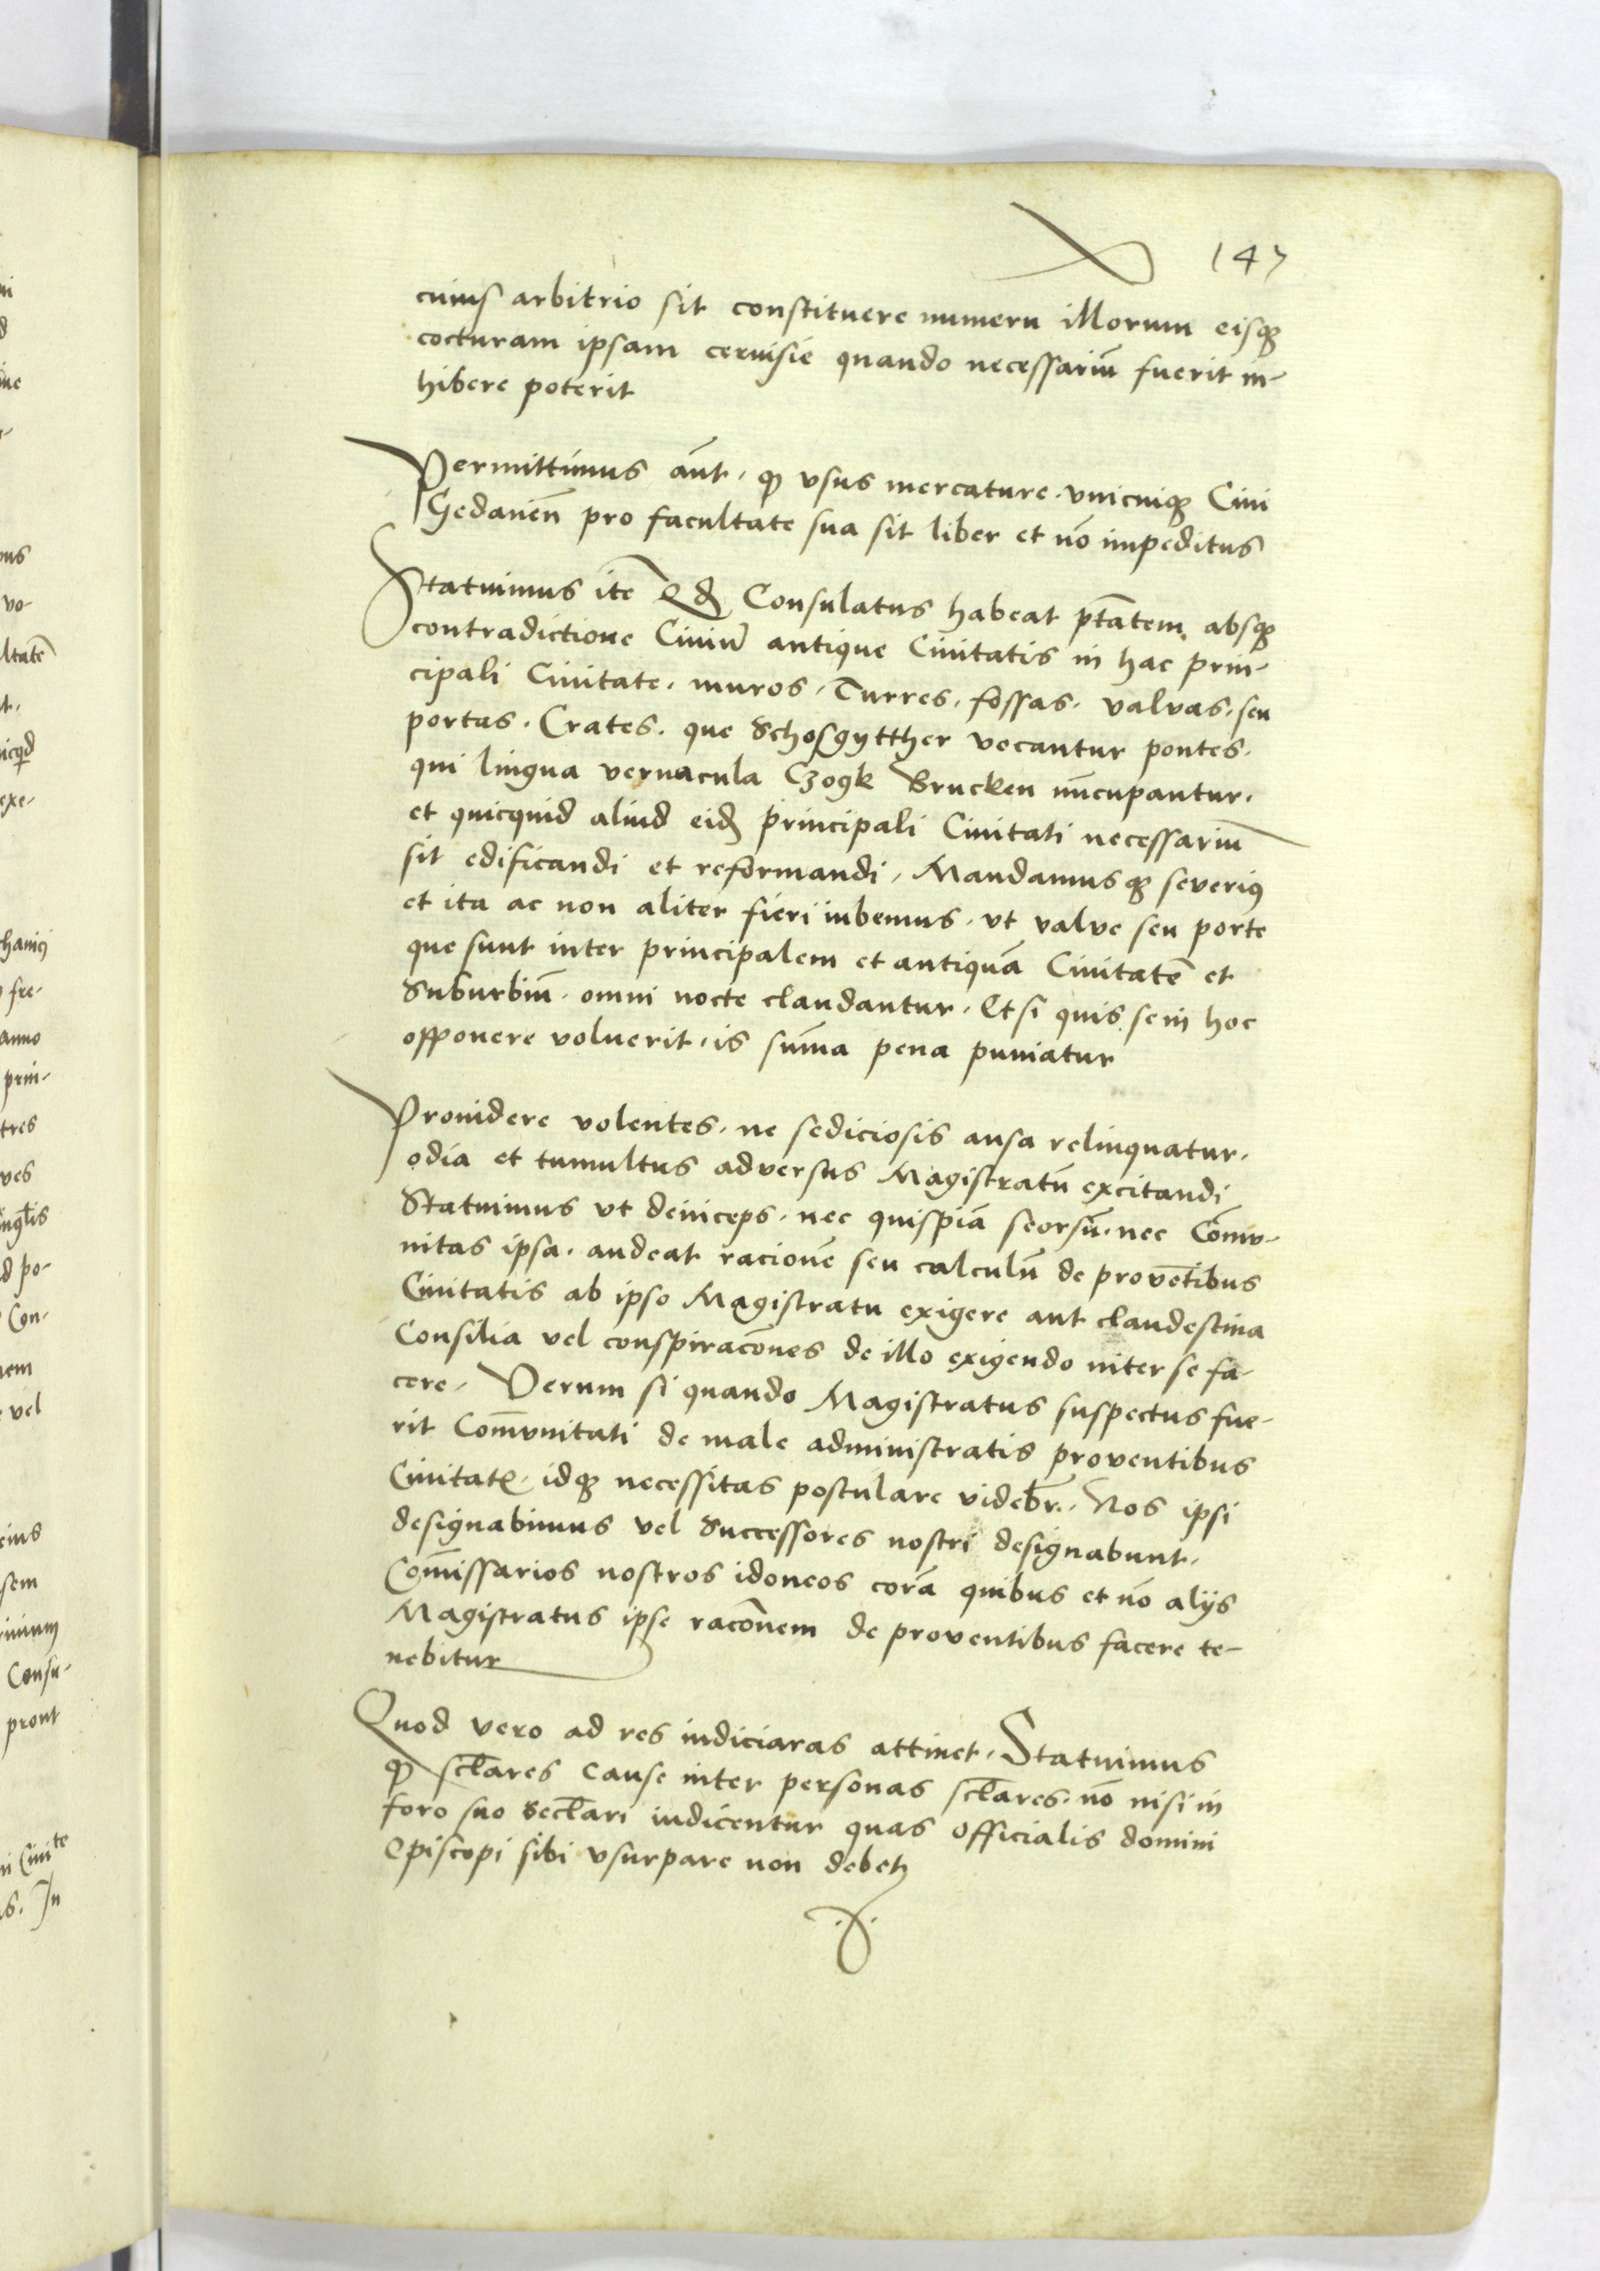 147
cuius arbitrio sit constituere numeru illorum eisqꝫ
cocturam ipsam ceruisie quando necessariū fuerit in-
hibere poterit
Permittimus aūt. ꝙ vsus mercature. vnicuiqꝫ Ciui
Gedaneñ pro facultate sua sit liber et nō impeditus
Statuimus itē Qđ Consulatus habeat ptātem absqꝫ
contradictione Ciuiū antique Ciuitatis in hac prin-
cipali Ciuitate. muros. Turres. fossas. valvas. seu
portas. Crates. que Schosgytther vocantur pontes.
qui lingua vernacula Czogk Brucken nūcupantur.
et quicquid aliud eidꝫ principali Ciuitati necessariū
sit edificandi et reformandi. Mandamusqꝫ severiꝰ
et ita ac non aliter fieri iubemus. vt valve seu porte
que sunt inter principalem et antiquā Ciuitatē et
Suburbiū. omni nocte claudantur. Et si quis se in hoc
opponere voluerit. is sūma pena puniatur
Prouidere volentes. ne sediciosis ansa relinquatur.
odia et tumultus adversus Magistratū excitandi
Statuimus vt deinceps. nec quispiā seorsū. nec Cōmu-
nitas ipsa. audeat racionē seu calculū de provētibus
Ciuitatis ab ipso Magistratu exigere aut clandestina
Consilia vel conspiracōnes de illo exigendo inter se fa-
cere. Verum si quando Magistratus suspectus fue-
rit Cōmvnitati de male administratis proventibus
Ciuitatꝭ. idqꝫ necessitas postulare videbr̄. Nos ipsi
designabimus vel Successores nostri designabunt.
Cōmissarios nostros idoneos corā quibus et nō alijs
Magistratus ipse racōnem de proventibus facere te-
nebitur
Quod vero ad res iudiciaras attinet. Statuimus
ꝙ sclāres cause inter personas sclāres. nō nisi in
foro suo seclāri iudicentur quas officialis domini
Episcopi sibi vsurpare non debetꝫ